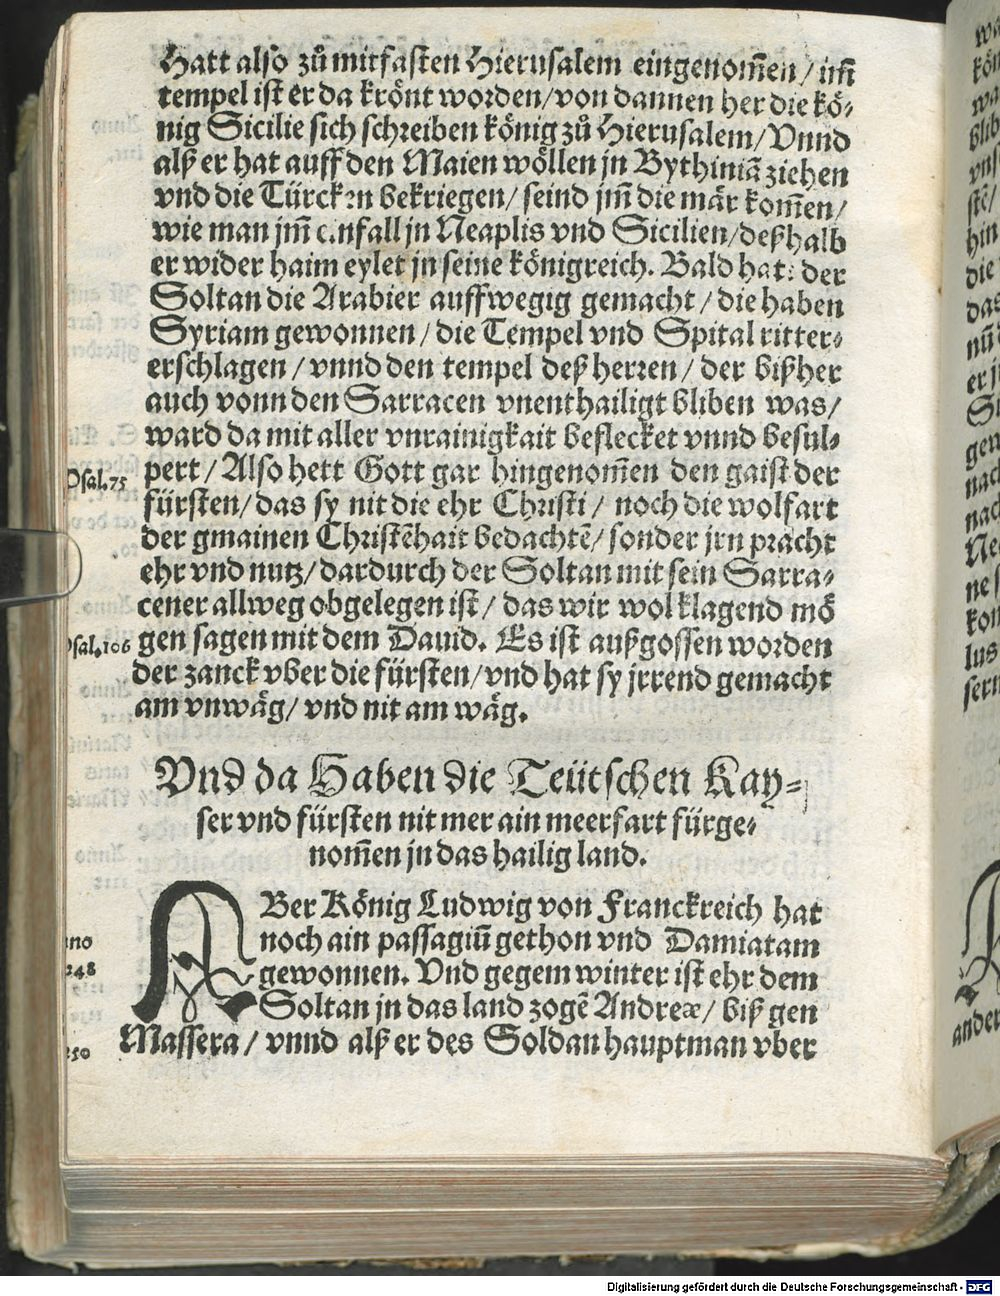 Hatt also zů mitfasten Hierusalem eingenom̄en / im̄
tempel ist er da krönt worden / von dannen her die kö-
nig Sicilie sich schreiben könig zů Hierusalem / Vnnd
alß er hat auff den Maien wöllen jn Bythiniā ziehen
vnd die Türcken bekriegen / seind jm̄ die mär kom̄en /
wie man jm̄ einfall jn Neaplis vnd Sicilien / deßhalb
er wider haim eylet jn seine königreich. Bald hat der
Soltan die Arabier auffwegig gemacht / die haben
Syriam gewonnen / die Tempel vnd Spital ritter-
erschlagen / vnnd den tempel deß herren / der bißher
auch vonn den Sarracen vnenthailigt bliben was /
ward da mit aller vnrainigkait beflecket vnnd besul-
Psal. 75 pert / Also hett Gott gar hingenom̄en den gaist der
fürsten / das sy nit die ehr Christi / noch die wolfart
der gmainen Christēhait bedachtē / sonder jrn pracht
ehr vnd nutz / dardurch der Soltan mit sein Sarra-
cener allweg obgelegen ist / das wir wol klagend mö
Psal. 106 gen sagen mit dem Dauid. Es ist außgossen worden
der zanck vber die fürsten / vnd hat sy jrrend gemacht
am vnwäg / vnd nit am wäg.
Vnd da Haben die Teütschen Kay-
ser vnd fürsten nit mer ain meerfart fürge-
nom̄en jn das hailig land.
ABer König Ludwig von Franckreich hat
no noch ain passagiū gethon vnd Damiatam
248 gewonnen. Vnd gegem winter ist ehr dem
Soltan jn das land zogē Andreæ / biß gen
250 Massera / vnnd alß er des Soldan hauptman vber
ander
Digitalisierung gefördert durch die Deutsche Forschungsgemeinschaft - DFG